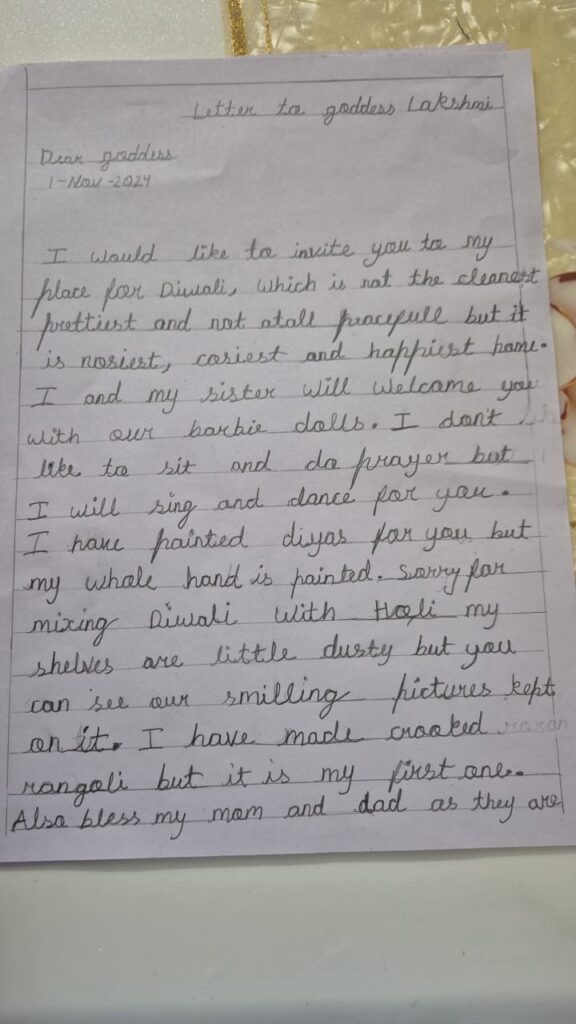 Letter to goddess Lakshmi
Dear goddess
1-Nov-2024
I would like to invite you to my
place for Diwali, which is not the cleanest
prettiest and not atall peacefull but it
is nosiest, cosiest and happiest home.
I and my sister will welcome you
with our barbie dolls. I don't
like to sit and do prayer but
I will sing and dance for you.
I have painted diyas for you but
my whole hand is painted. Sorry for
mixing Diwali with Holi my
shelves are little dusty but you
can see our smilling pictures kept
on it. I have made crooked
rangoli but it is my first one.
Also bless my mom and dad as they are